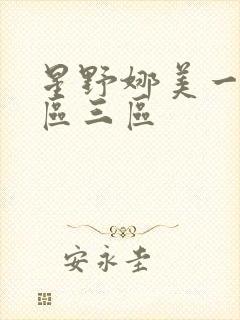 星野娜美一
區三區
安永圭